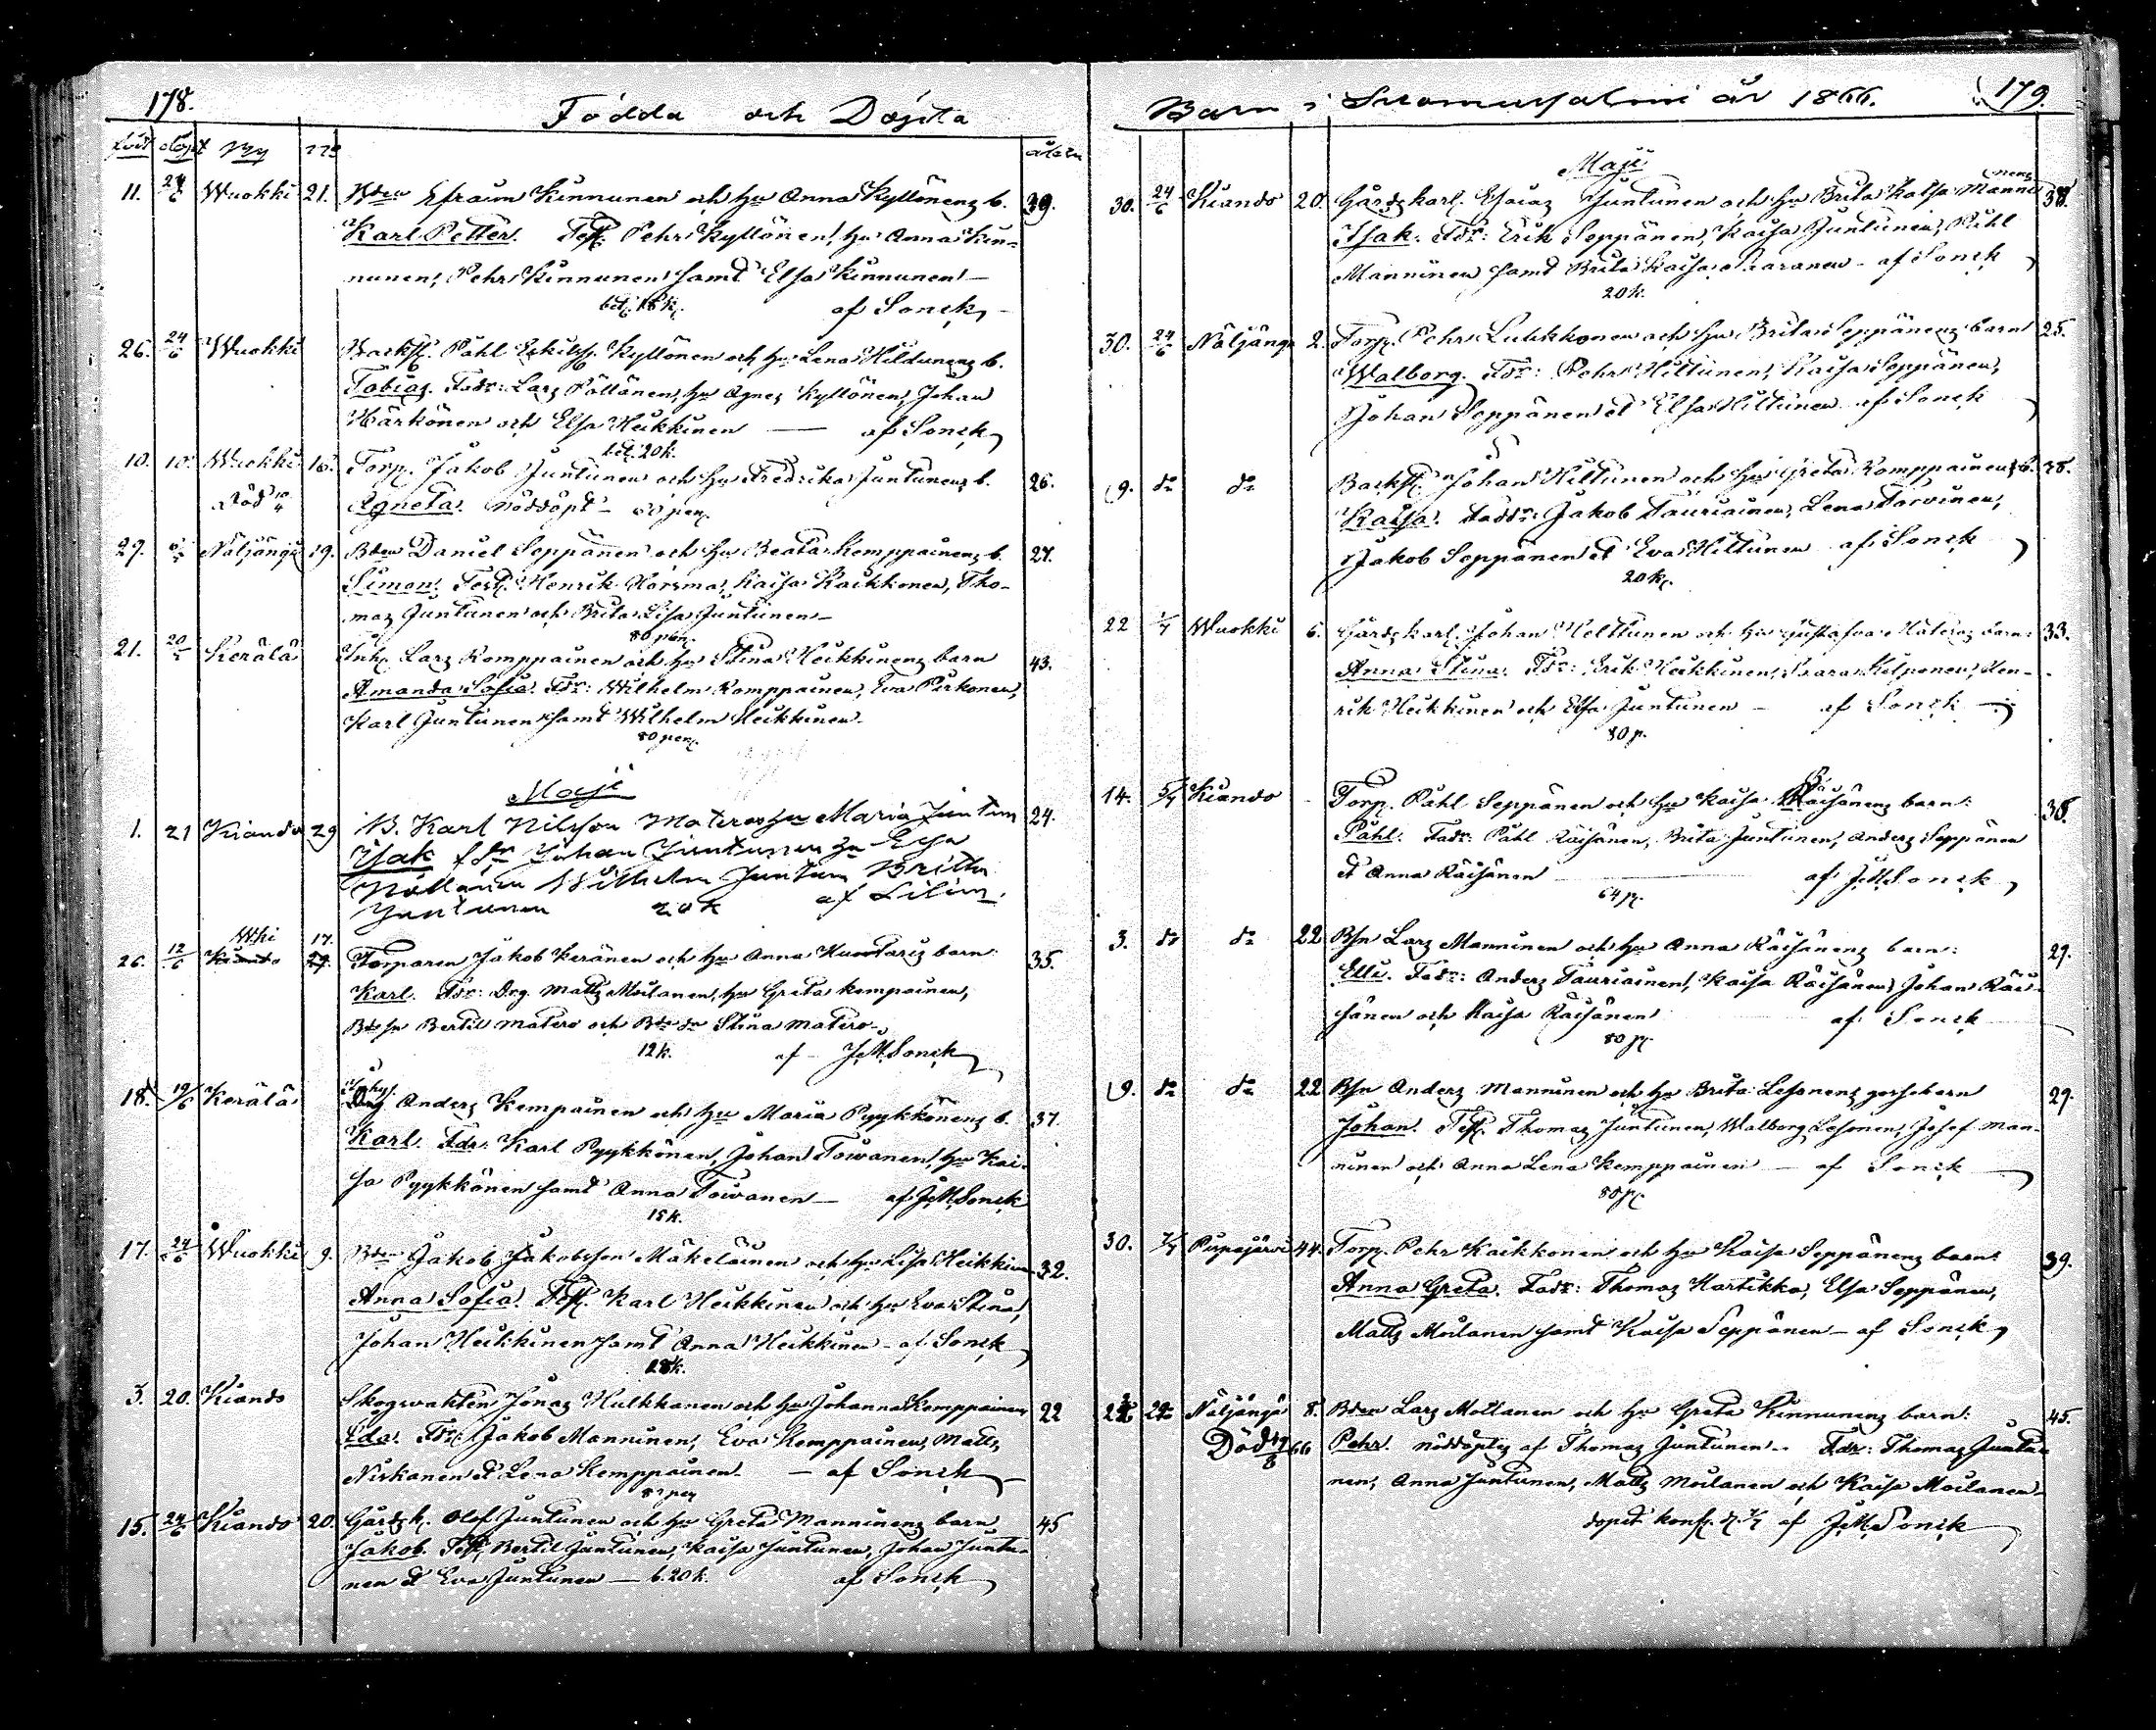 178.
Födda och Döpta
född döpt By No ålder
11. 24/6 Wuokki 21. Bden Efraim Kinnunen och Hu Anna Kyllönens b. 39.
Karl Petter. Test. Pehr Kyllönen, Hu Anna Kin-
nunen, Pehr Kinnunen samt Elsa Kinnunen –
bet. 18 k. af Sonck
26. 24/6 Wuokki Backst. Påhl Kyllönen och Hu Lena Hildunens b.
Tobias. Fadr: Lars Pöllönen, Hu Agnes Kyllönen, Johan
Härkönen och Elsa Heikkinen — af Sonck
bet. 20 k.
10. 10. Wuokki 16. Torp. Jakob Juntunen och Hu Fredrika Juntunens b. 26.
Död 10/4 Agneta. nöddöpt –
27. Näljängä 19. Bden Daniel Seppänen och Hu Beata Kemppainens b. 27.
Simon. Test. Henrik Horsma, Kaisa Kaikkonen, Tho-
mas Juntunen och Brita Lisa Juntunen –
80 pen.
21. Kerälä Inh. Lars Komppainen och Hu Stina Heikkinens barn 43.
Amanda Sofia. Fdr: Wilhelm Komppainen, Eva Pirkonen,
Karl Juntunen samt Wilhelm Heikkinen.
80 pen.
Maji
1. 21 Kiando 29 B. Karl Nilsson Matero Hu Maria Juntun 24.
Isak fdr Johan Juntunen Hu Elsa
Wilhelm Juntun Britta
Juntunen 20 k af Lilius.
26. 12/6 Wki 17. Torparen Jakob Keränen och Hu Anna Huotaris barn: 35.
Karl. Fdr: Drg. Matts Moilanen, Hu Greta Kempainen,
Bdesn Bertil Matero och Bdedr Stina Matero.
12 k. af J.M. Sonck
18. 19/6 Kerälä Inhys. Anders Kempainen och Hu Maria Pyykkönens b. 37.
Karl. Fdr: Karl Pyykkönen, Johan Toivanen, Hu Kai-
sa Pyykkönen samt Anna Toivanen – af J.M. Sonck
15 k.
17. 24/6 Wuokki 9. Bden Jakob Jakobsson Mäkeläinen och Hu Lisa Heikkinen 32.
Anna Sofia. Test. Karl Heikkinen och Hu Eva Stina,
Johan Heikkinen samt Anna Heikkinen – af Sonck
18 k.
3. 20. Kiando Skogswakten Jonas Hulkkonen och Hu Johanna Kemppainens 22
Eda. Fdr: Jakob Manninen, Eva Kemppainen, Matts
Niskanen et Lena Kemppainen. – af Sonck
15. 24/6 Kiando 20. Gårdsk. Olof Juntunen och Hu Greta Manninens barn 45
Jakob. Test. Bertil Juntunen, Kaisa Juntunen, Johan Juntu-
nen et Eva Juntunen — b. 20 k. af Sonck
Barn i Suomussalmi år 1866. 179.
Maji
30. 24/6 Kiando 20. Gårdskarl. Esaias Juntunen och Hu Brita Kaisa Manninens 38.
Isak. Fdr: Erik Seppänen, Kaisa Juntunen, Påhl
Manninen samt Brita Kaisa – af Sonck
20 k.
30. 24/6 Näljängä 2. Torp. Pehr Lukkonen och Hu Brita Seppänens barn 25.
Walborg. Fdr: Pehr Hiltunen, Kaisa Seppänen,
Johan Seppänen et Elsa Hiltunen af Sonck
9. do do Backst. Johan Hiltunen och Hu Greta Komppainens b.
Kaisa. Faddr: Jakob Tauriainen, Lena Torvinen,
Jakob Seppänen et Eva Hiltunen af Sonck
20 k.
22 1/7 Wuokki 6. Gårdskarl. Johan Helttunen och Hu Gustafva Materos barn: 33.
Anna Stina. Fdr: Erik Heikkinen, Saara Kilponen, Hen-
rik Heikkinen och Elsa Juntunen – af Sonck
80 p.
14. 5/7 Kiando Torp. Påhl Seppänen och Hu Kaisa Räisänens barn: 38.
Påhl. Fadr: Påhl Räisänen, Brita Juntunen, Anders Seppänen
et Anna Räisänen af J.M. Sonck
64 p.
3. do do 22 Bsn Lars Manninen och Hu Anna Räisänens barn: 29.
Elli. Fadr: Anders Tauriainen, Kaisa Räisänen, Johan Räi-
sänen och Kaisa Räisänen af Sonck
80 p.
9. do do 22 Bsn Anders Manninen och Hu Brita Lesonens gossebarn 29.
Johan. Test. Thomas Juntunen, Walborg Lesonen, Josef Man-
ninen och Anna Lena Kemppainen — af Sonck
80 p.
30. 7/7 Pispajärvi 44. Torp. Pehr Kaikkonen och Hu Kaisa Seppänens barn: 39.
Anna Greta. Fadr: Thomas Kartikko, Elsa Seppänen,
Matts Moilanen samt Kaisa Seppänen – af Sonck
Näljängä 8. Bden Lars Moilanen och Hu Greta Kinnunens barn: 45.
Död 66 Pehr. nöddöptes af Thomas Juntunen. Fdr: Thomas Juntu-
nen, Anna Juntunen, Matts Moilanen och Kaisa Moilanen –
dopet konf. d. 7/7 af J.M. Sonck